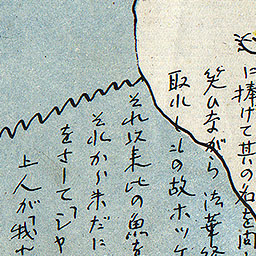 に捧げて其の名を問
笑ひながら法華経
取れしは此の故ホッケ
それ以来此の魚を
それから未だに
をさして「シャ
上人が「我